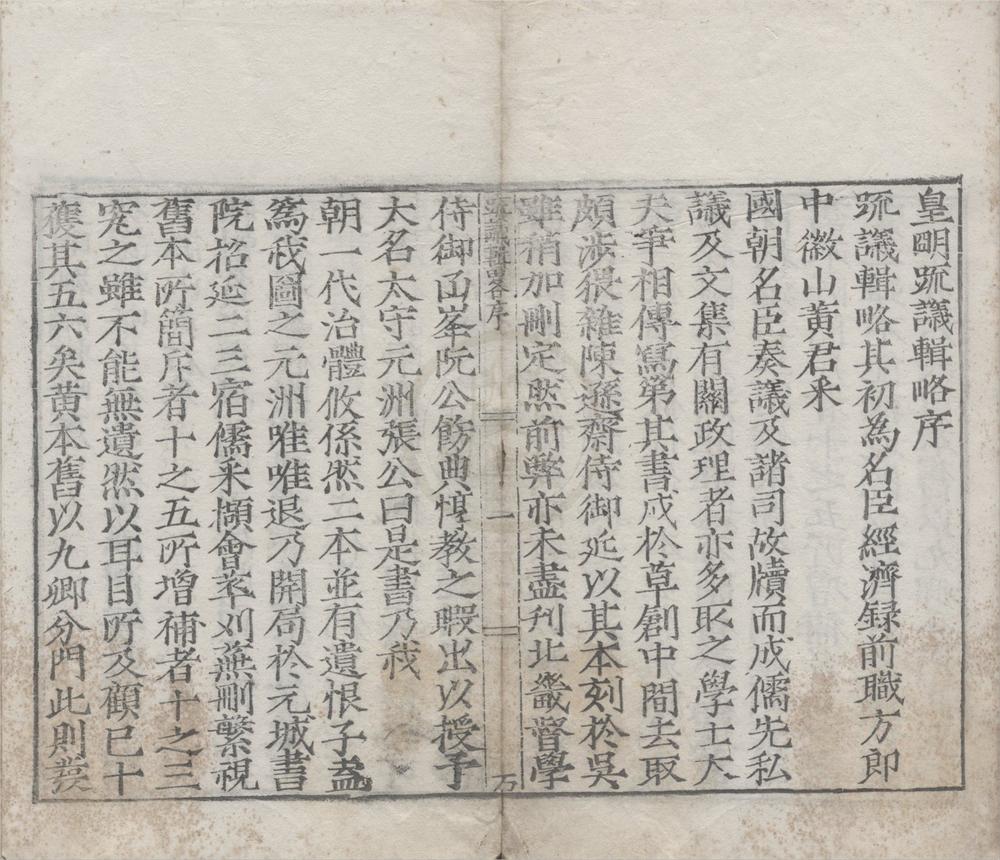 皇明疏議輯略序
疏議輯略其初為名臣經濟録前職方郎
中徽山黄君采
國朝名臣奏議及諸司故牘而成儒先私
議及文集有關政理者亦多取之學士大
夫宰相傳寫第其書成於草創中間去取
頗涉猥雜陳遜齋侍御延以其本刻於吳
雖稍加刪定然前弊亦未盡刋北畿督學
疏議輯畧序
一
万
侍御函峯阮公飭典惇教之暇出以授予
大名太守元洲張公曰是書乃我
朝一代治體攸係然二本並有遺恨子盍
為我圖之元洲唯唯退乃開局於元城書
院招延二三宿儒采擷會萃刈蕪刪繁視
舊本所簡斥者十之五所增補者十之三
究之雖不能無遺然以耳目所及顧已十
獲其五六矣黄本舊以九卿分門此則